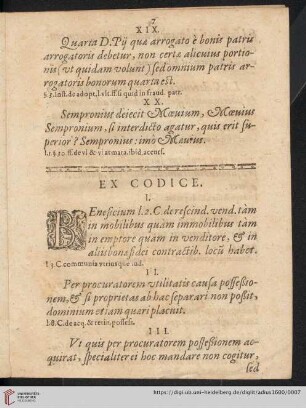 XIX.
Quarta D. Pij quæ arrogato è bonis patris
arrogatoris debetur, non certæ alicuius portio-
nis (ut quidam volunt) sed omnium patris ar-
rogatoris bonorum quarta est.
XX.
Sempronius deiecit Mævium, Mævius
Sempronium, si interdicto agatur, quis erit su-
perior? Sempronius: imò Mævius.
EX CODICE.
I.
BEneficium l. 2. C. de rescind. vend. tàm
in mobilibus quàm immobilibus tàm
in emptore quàm in venditore, & in
alijs bonæ fidei contractib. locũ habet.
II.
Per procuratorem vtilitatis causa possessio-
nem, & si proprietas ab hac separari non possit,
dominium etiam quæri placuit.
l. 8. C. de acq. & retin. possess.
III.
Vt quis per procuratorem possessionem ac-
quirat, specialiter ei hoc mandare non cogitur,
sed
https://digi.ub.uni-heidelberg.de/diglit/